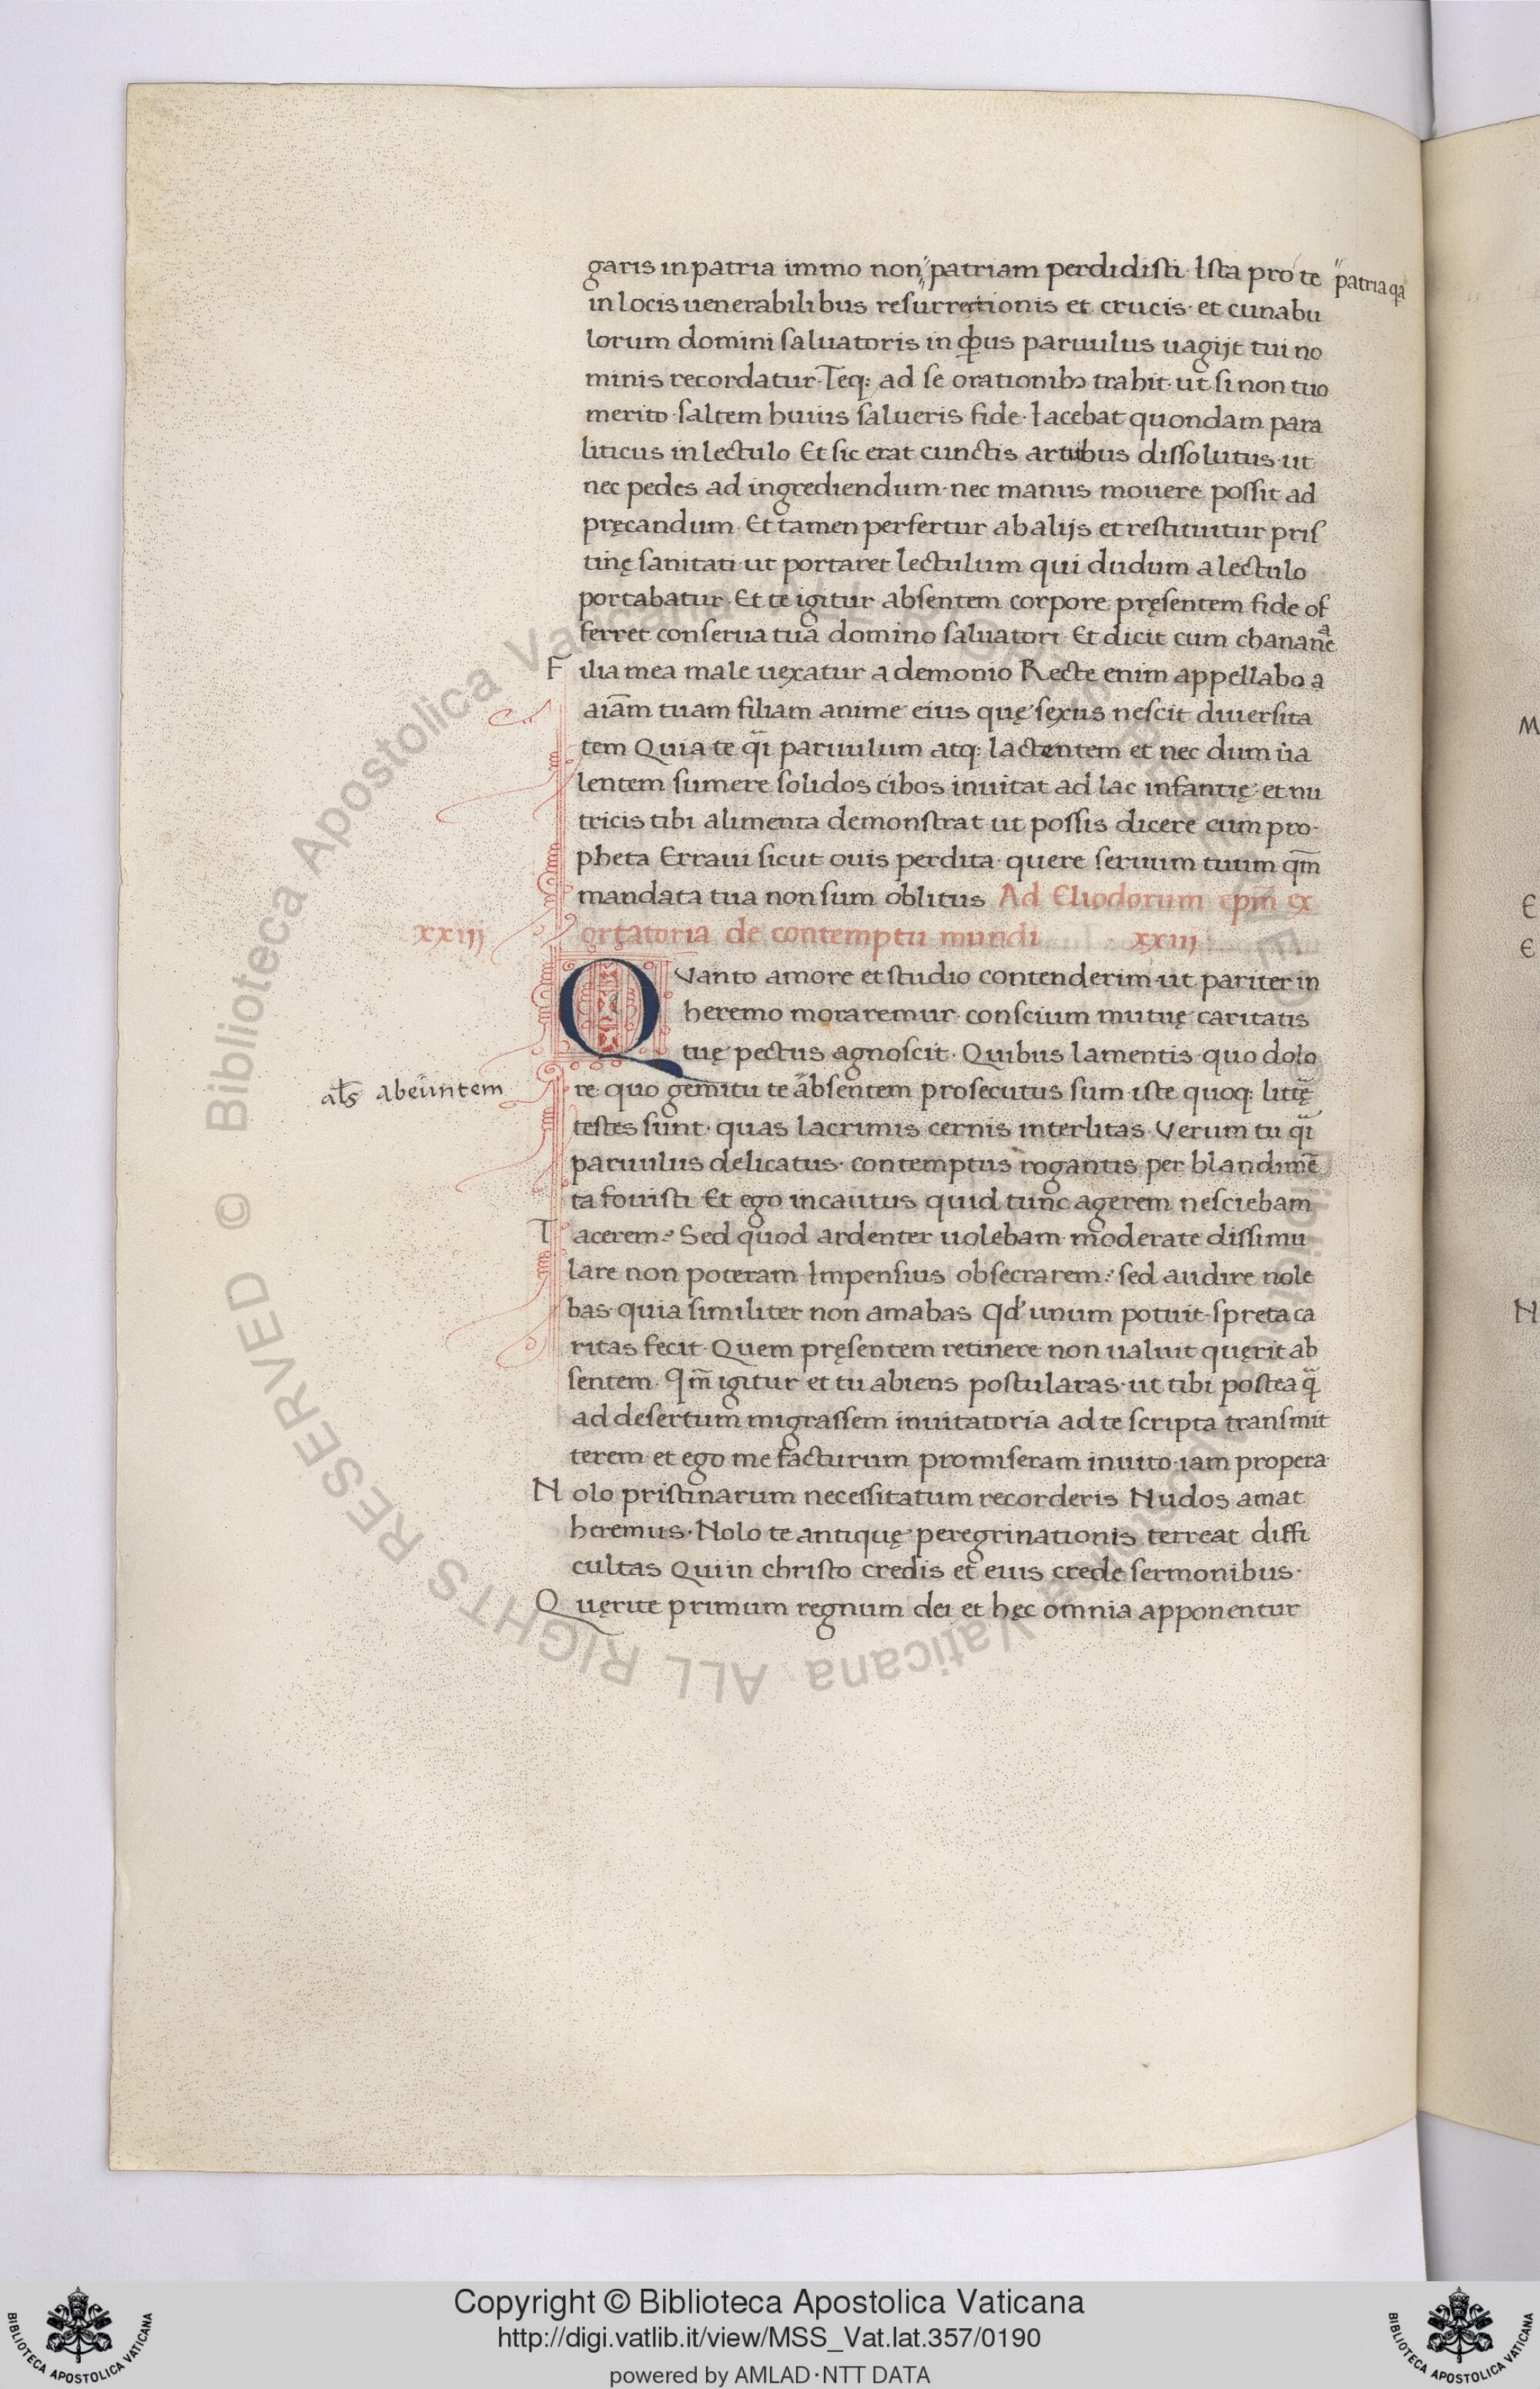 garis in patria immo non patriam perdidisti· Ista pro te patria qa
in locis uenerabilibus resurrectionis et crucis· et cunabu
lorum domini saluatoris in qbus paruulus uagijt tui no
minis recordatur· Teq: ad se orationibꝫ trahit· ut si non tuo
merito· saltem huius salueris fide· Iacebat quondam para
liticus in lectulo Et sic erat cunctis artubus dissolutus· ut
nec pedes ad ingrediendum· nec manus mouere possit ad
pręcandum· Et tamen perfertur ab alijs et restituitur pris
tinę sanitati· ut portaret lectulum qui dudum a lectulo
portabatur· Et te igitur absentem corpore pręsentem fide of
ferret conserua tua domino saluatori Et dicit cum chananea
Filia mea male uexatur a demonio Recte enim appellabo a
aiam tuam filiam anime eius quę sexus nescit diuersita
tem Quia te qi paruulum atq: lactentem et nec dum ua
lentem sumere solidos cibos inuitat ad lac infantię· et nu
tricis tibi alimenta demonstrat ut possis dicere cum pro-
pheta Erraui sicut ouis perdita· quere seruum tuum qm̄
mandata tua non sum oblitus Ad Eliodorum epm̄ ex
xxiij ortatoria de contemptu mundi xxiij
Quanto amore et studio contenderim· ut pariter in
heremo moraremur· conscium mutuę caritatis
tuę pectus agnoscit· Quibus lamentis· quo dolo
als abeuntem
re quo gemitu te absentem prosecutus sum iste quoq: littę
testes sunt· quas lacrimis cernis interlitas· Verum tu qi
paruulus delicatus· contemptus rogantis per blandimē
ta fouisti Et ego incautus quid tunc agerem nesciebam
Tacerem? Sed quod ardenter uolebam· moderate dissimu
lare non poteram· Impensius obsecrarem? sed audire nole
bas· quia similiter non amabas Qd unum potuit· spreta ca
ritas fecit· Quem pręsentem retinere non ualuit quęrit ab
sentem· Qm̄ igitur et tu abiens postularas· ut tibi postea q
ad desertum migrassem inuitatoria ad te scripta transmit
terem· et ego me facturum promiseram inuito· iam propera
Nolo pristinarum necessitatum recorderis Nudos amat
heremus· Nolo te antiquę peregrinationis terreat diffi
cultas Qui in christo credis et eius crede sermonibus·
Quęrite primum regnum dei et hęc omnia apponentur
M
E
E
N
Copyright © Biblioteca Apostolica Vaticana
http://digi.vatlib.it/view/MSS_Vat.lat.357/0190
powered by AMLAD·NTT DATA
BIBLIOTECA APOSTOLICA VATICANA
BIBLIOTECA APOSTOLICA VATICANA
© Biblioteca Apostolica Vaticana ALL RIGHTS RESERVED